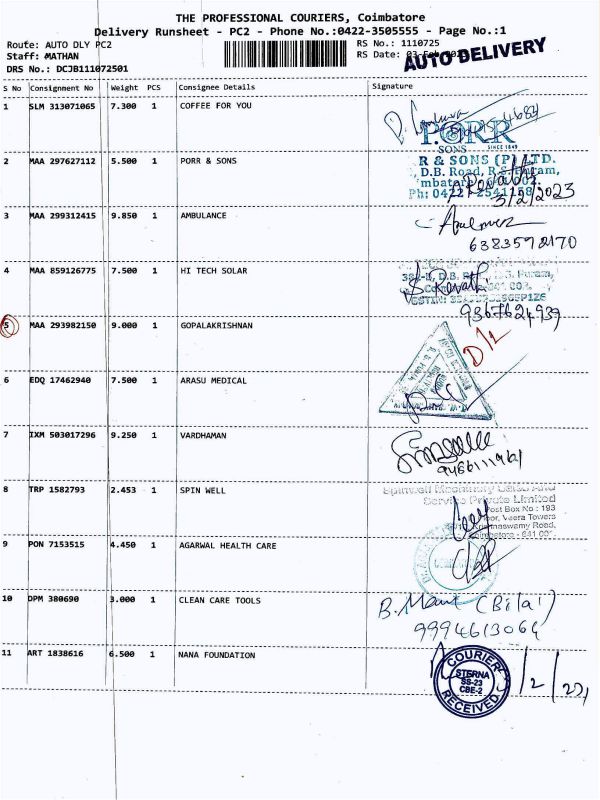 THE PROFESSIONAL COURIERS, Coimbatore
Delivery Runsheet - PC2 - Phone No.:0422-3505555 - Page No.:1
Route: AUTO DLY PC2 RS No.: 1110725
Staff: MATHAN RS Date: 03-Feb AUTO DELIVERY
DRS No.: DCJB111072501
S No Consignment No Weight PCS Consignee Details Signature
1 SLM 313071065 7.300 1 COFFEE FOR YOU
PORR
SONS SINCE 1849
2 MAA 297627112 5.500 1 PORR & SONS R & SONS (P) LTD.
D.B. Road, R.S. Puram,
Ph: 0422 2541158
Revathi
3/2/2023
3 MAA 299312415 9.850 1 AMBULANCE
6383592170
4 MAA 859126775 7.500 1 HI TECH SOLAR
S Revathi
9367624939
5 MAA 293982150 9.000 1 GOPALAKRISHNAN
D/L
6 EDQ 17462940 7.500 1 ARASU MEDICAL
7 IXM 503017296 9.250 1 VARDHAMAN
8 TRP 1582793 2.453 1 SPIN WELL
Service Private Limited
Post Box No : 193
Veera Towers
9 PON 7153515 4.450 1 AGARWAL HEALTH CARE
10 DPM 380690 3.000 1 CLEAN CARE TOOLS B. Mani (Bilal)
9994613064
11 ART 1838616 6.500 1 NANA FOUNDATION COURIER
STERNA
SS-23
CBE-2
RECEIVED